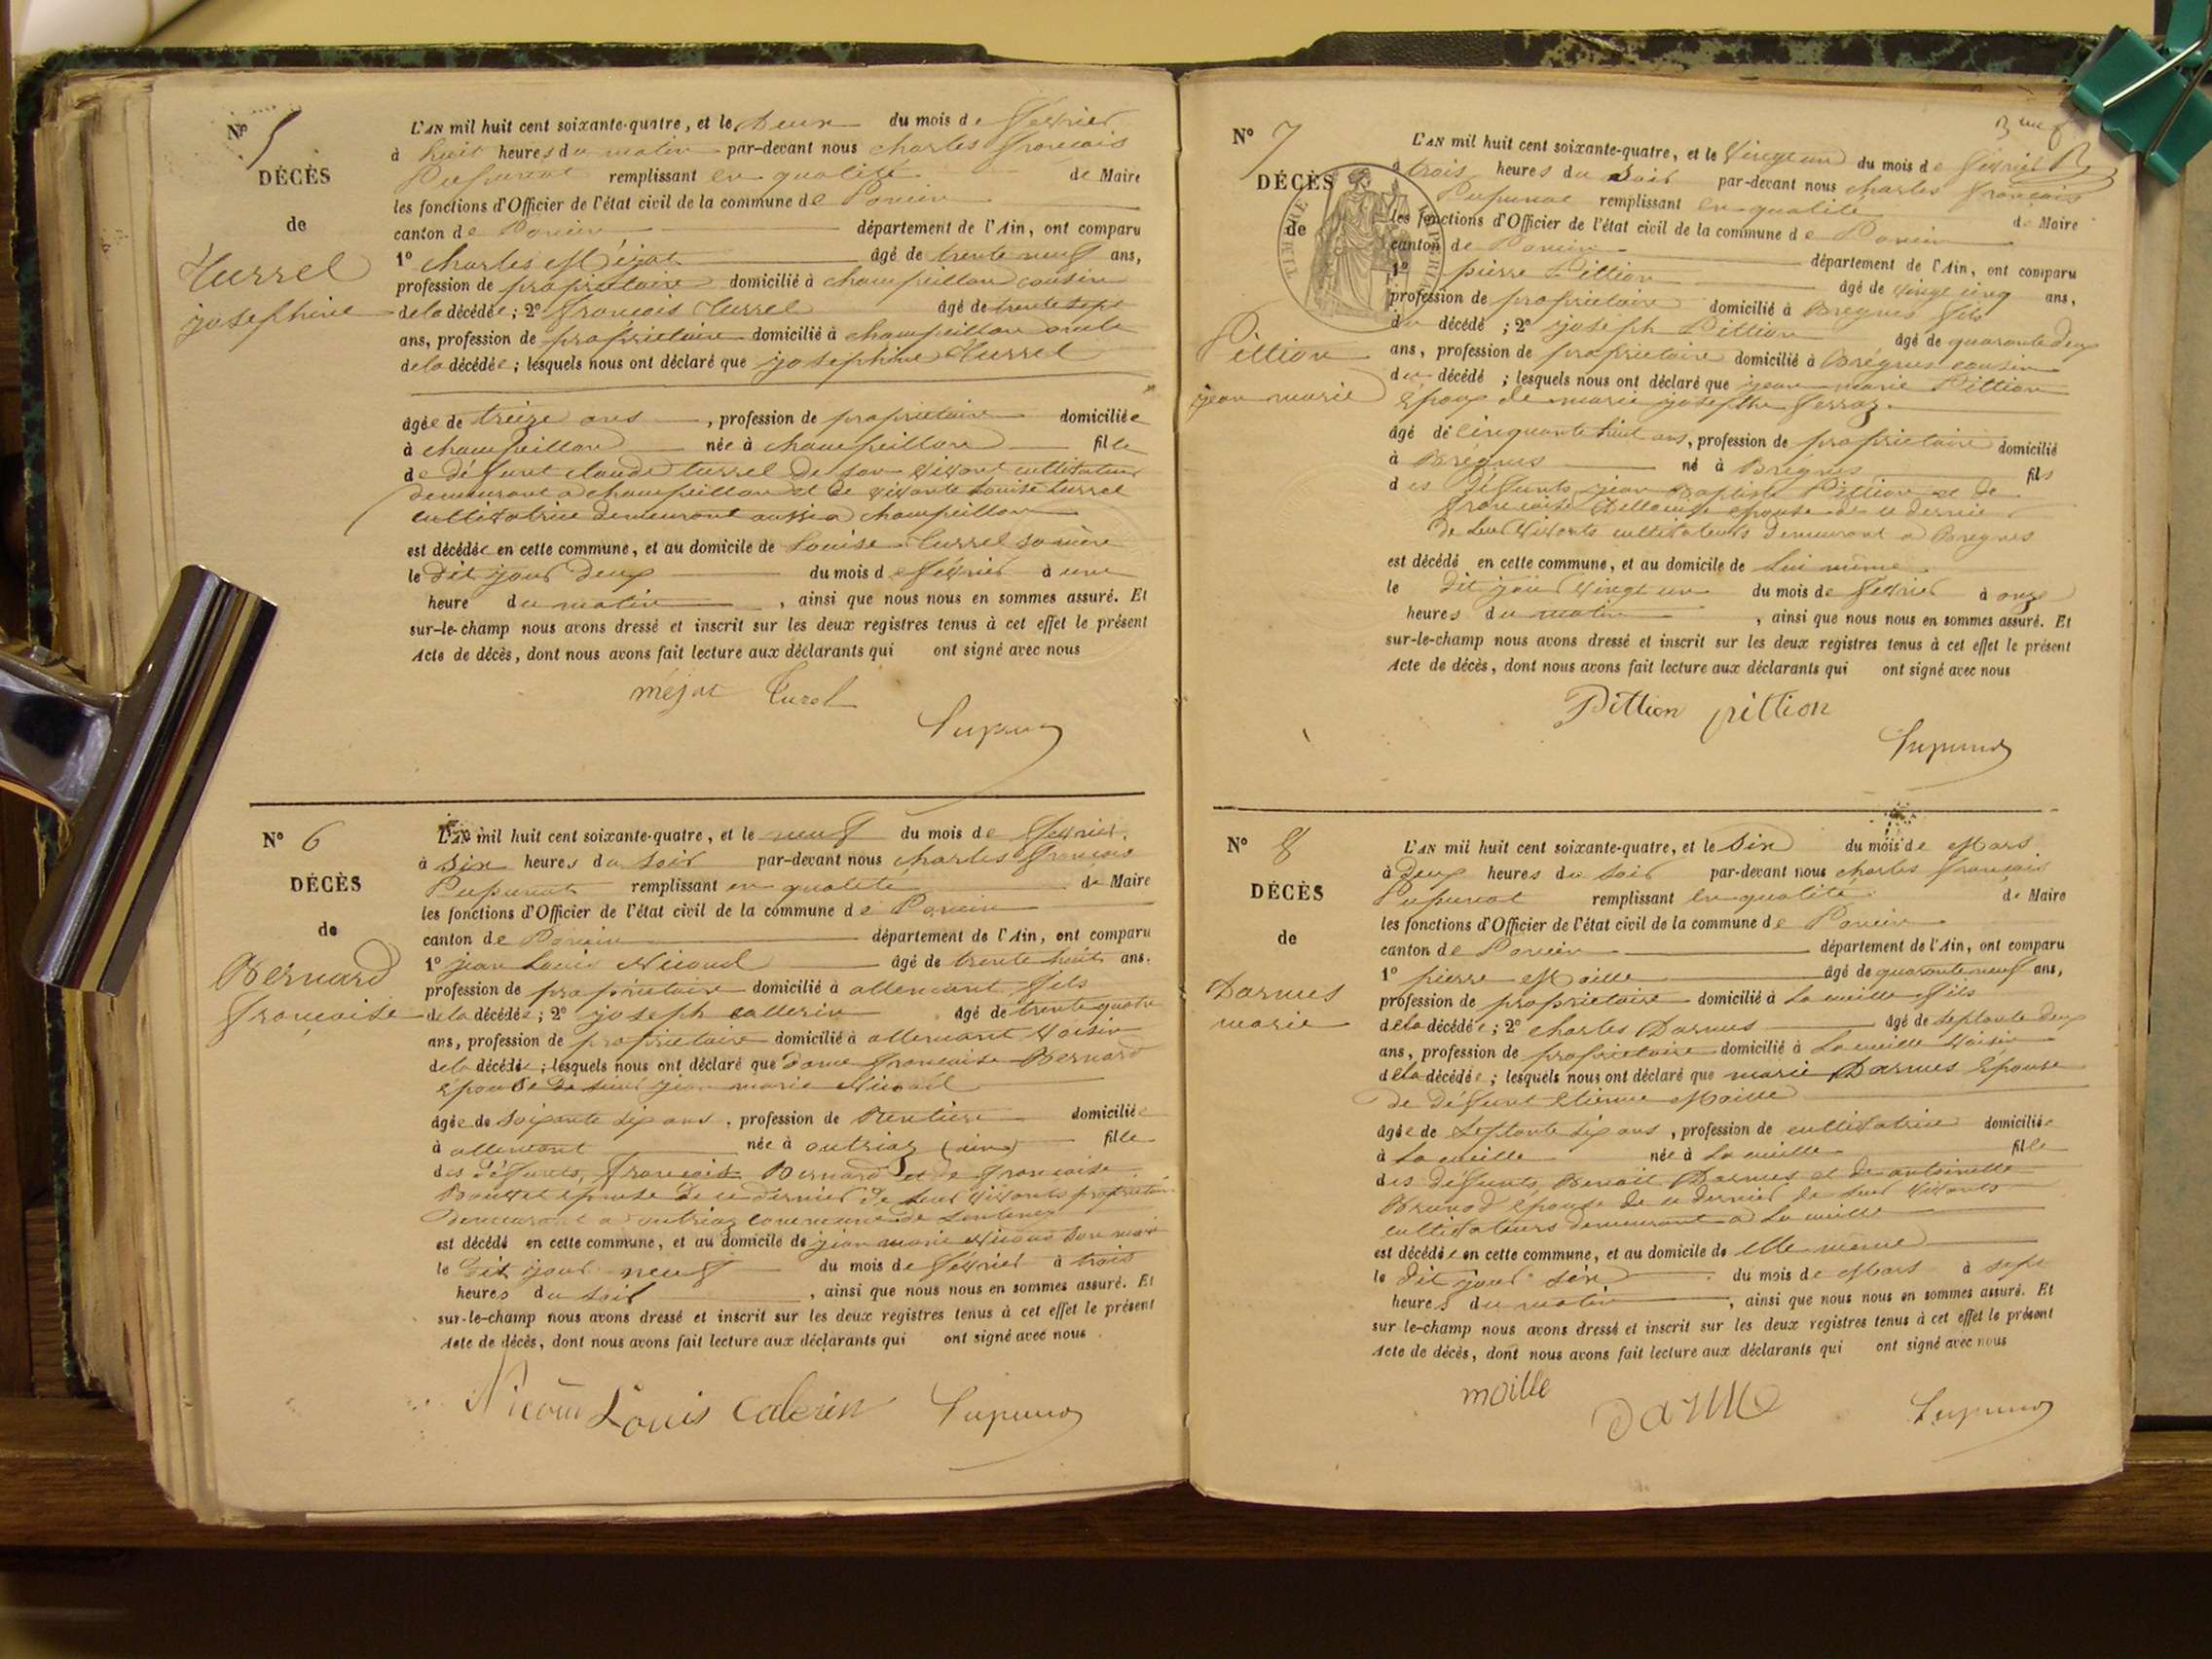 N° 5
DÉCÈS
de
Turrel
josephine
L'AN mil huit cent soixante-quatre, et le Deux du mois de fevrier
à huit heures du matin par-devant nous charles françois
Pupunat remplissant en qualité de Maire
les fonctions d'Officier de l'état civil de la commune de Poncin
canton de Poncin département de l'Ain, ont comparu
1° charles Méjat âgé de trente neuf ans,
profession de propriétaire domicilié à champeillon cousin
de la décédée; 2° françois Turrel âgé de trente sept
ans, profession de propriétaire domicilié à champeillon oncle
de la décédée; lesquels nous ont déclaré que josephine Turrel
âgée de treize ans, profession de propriétaire domiciliée
à champeillon née à champeillon fille
de défunt claude turrel de son vivant cultivateur
demeurant a champeillon et de vivante Louise turrel
cultivatrice demeurant aussi a champeillon
est décédée en cette commune, et au domicile de Louise Turrel sa mère
le dit jour deux du mois de fevrier à une
heure du matin, ainsi que nous nous en sommes assuré. Et
sur-le-champ nous avons dressé et inscrit sur les deux registres tenus à cet effet le présent
Acte de décès, dont nous avons fait lecture aux déclarants qui ont signé avec nous
méjat Turel
Pupunat
N° 6
DÉCÈS
de
Bernard
françoise
L'AN mil huit cent soixante-quatre, et le neuf du mois de fevrier
à Six heures du soir par-devant nous charles françois
Pupunat remplissant en qualité de Maire
les fonctions d'Officier de l'état civil de la commune de Poncin
canton de Poncin département de l'Ain, ont comparu
1° jean Louis Nicoud âgé de trente huit ans.
profession de propriétaire domicilié à allement fils
de la décédée; 2° joseph callerin âgé de trente quatre
ans, profession de propriétaire domicilié à allement voisin
de la décédée; lesquels nous ont déclaré que dame françoise Bernard
épouse de jean marie Nicoud
âgée de soixante six ans, profession de Rentière domiciliée
à allement née à outriaz (ain) fille
des défunts, françois Bernard et de françoise
épouse de ce dernier de leur vivants propriétaires
demeurant a outriaz commune de Lantenay
est décédé en cette commune, et au domicile de jean marie Nicoud son mari
le dit jour neuf du mois de février à trois
heures du soir, ainsi que nous nous en sommes assuré. Et
sur-le-champ nous avons dressé et inscrit sur les deux registres tenus à cet effet le présent
Acte de décès, dont nous avons fait lecture aux déclarants qui ont signé avec nous
Nicoud Louis Calerin Pupunat
N° 7
DÉCÈS
de
Pittion
jean marie
TIMBRE IMPÉRIAL
L'AN mil huit cent soixante-quatre, et le vingt un du mois de fevrier
à trois heures du soir par-devant nous charles françois
Pupunat remplissant en qualité de Maire
les fonctions d'Officier de l'état civil de la commune de Poncin
canton de Poncin département de l'Ain, ont comparu
1° pierre Pittion âgé de vingt cinq ans,
profession de propriétaire domicilié à Brégnes fils
du décédé; 2° joseph Pittion âgé de quarante deux
ans, profession de propriétaire domicilié à Brégnes cousin
du décédé; lesquels nous ont déclaré que jean marie Pittion
époux de marie josephte ferraz.
âgé de cinquante huit ans, profession de propriétaire domicilié
à Bregnes né à Brégnes fils
des défunts jean Baptiste Pittion et de
françoise épouse de ce dernier
de leur vivants cultivateurs demeurant a Bregnes
est décédé en cette commune, et au domicile de Lui même
le dit jour vingt un du mois de fevrier à onze
heures du matin, ainsi que nous nous en sommes assuré. Et
sur-le-champ nous avons dressé et inscrit sur les deux registres tenus à cet effet le présent
Acte de décès, dont nous avons fait lecture aux déclarants qui ont signé avec nous
Pittion pittion
Pupunat
N° 8
DÉCÈS
de
Darmes
marie
L'AN mil huit cent soixante-quatre, et le Six du mois de Mars
à Deux heures du soir par-devant nous charles françois
Pupunat remplissant en qualité de Maire
les fonctions d'Officier de l'état civil de la commune de Poncin
canton de Poncin département de l'Ain, ont comparu
1° pierre Moille âgé de quarante neuf ans,
profession de propriétaire domicilié à La cueille fils
de la décédée; 2° charles Darmes âgé de septante deux
ans, profession de propriétaire domicilié à La cueille voisin
de la décédée; lesquels nous ont déclaré que marie Darmes épouse
de défunt Etienne Moille
âgée de septante six ans, profession de cultivatrice domiciliée
à La cueille née à La cueille fille
des défunts Benoit Darmes et de antoinette
Brunod épouse de ce dernier de leur vivants
cultivateurs demeurant a La cueille
est décédée en cette commune, et au domicile de elle même
le dit jour six du mois de Mars à sept
heures du matin, ainsi que nous nous en sommes assuré. Et
sur le-champ nous avons dressé et inscrit sur les deux registres tenus à cet effet le présent
Acte de décès, dont nous avons fait lecture aux déclarants qui ont signé avec nous
moille
Darme
Pupunat